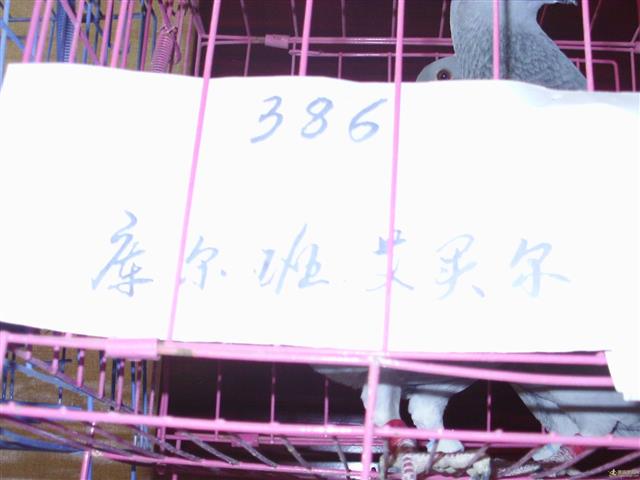 386
库尔班艾买尔